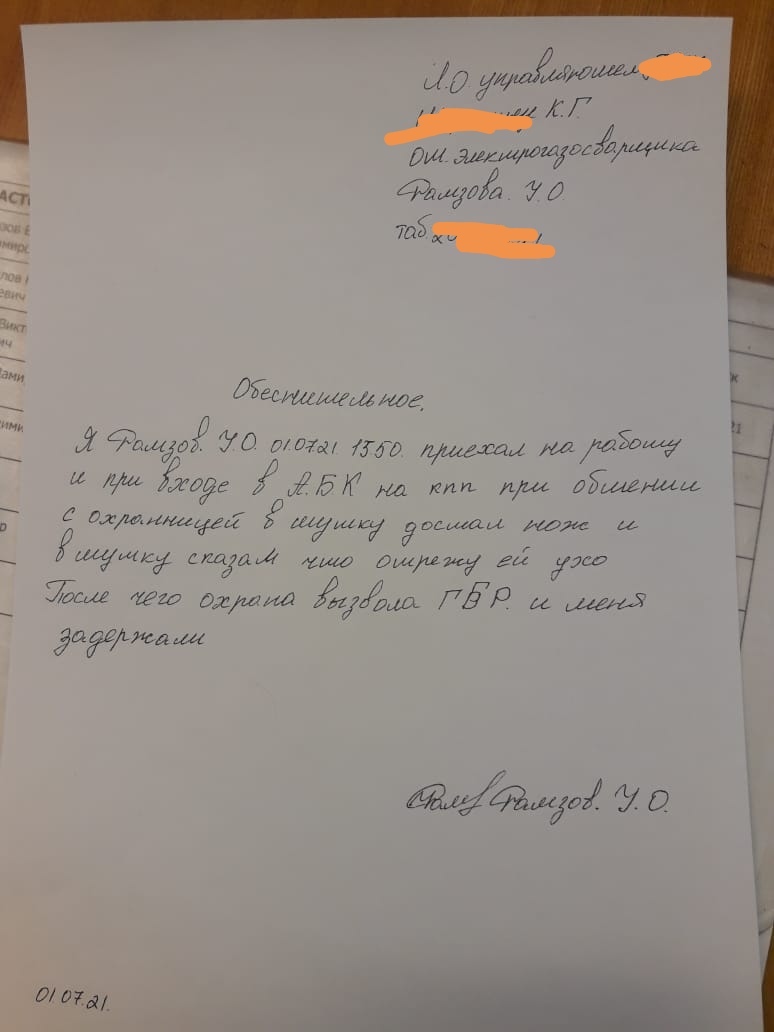 И.О. управляющем
К.Г.
От. электрогазосварщика
Рамзова. У.О.
таб.
Обеснительное.
Я Рамзов. У.О. 01.07.21. 1350. приехал на работу
и при входе в А.Б.К на кпп при общении
с охранницей в шутку достал нож и
в шутку сказал что отрежу ей ухо
После чего охрана вызвола ГБР. и меня
задержали
Рамзов. У.О.
01.07.21.
АСТ
нк
21